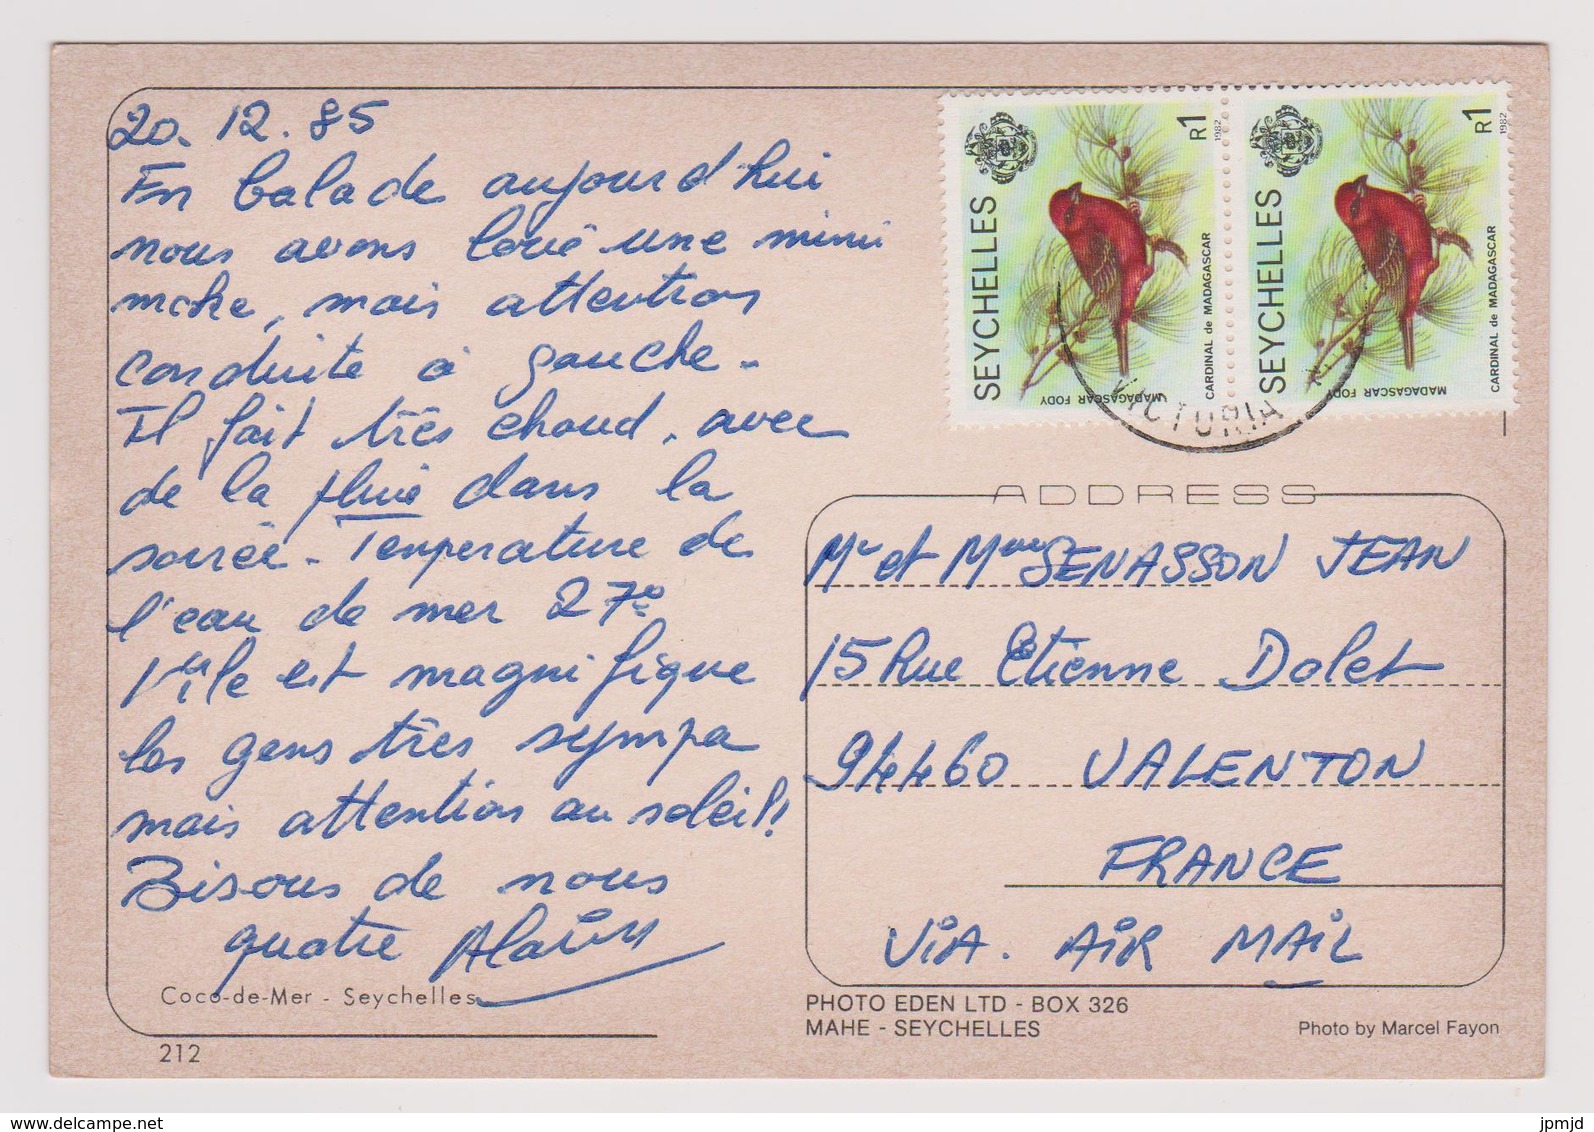 20. 12. 85
En balade aujourd'hui
nous avons loué une mini
moke, mais attention
conduite à gauche.
Il fait très chaud, avec
de la pluie dans la
soirée. Température de
l'eau de mer 27°
l'île est magnifique
les gens très sympa
mais attention au soleil!!
Bisous de nous
quatre Alain
Coco-de-Mer - Seychelles
212
SEYCHELLES
R1
1982
CARDINAL de MADAGASCAR
MADAGASCAR FODY
SEYCHELLES
R1
1982
CARDINAL de MADAGASCAR
MADAGASCAR FODY
VICTORIA
ADDRESS
Mr et Mme SENASSON JEAN
15 Rue Etienne Dolet
94460 VALENTON
FRANCE
ViA. AiR MAiL
PHOTO EDEN LTD - BOX 326
MAHE - SEYCHELLES
Photo by Marcel Fayon
www.delcampe.net
jpmjd